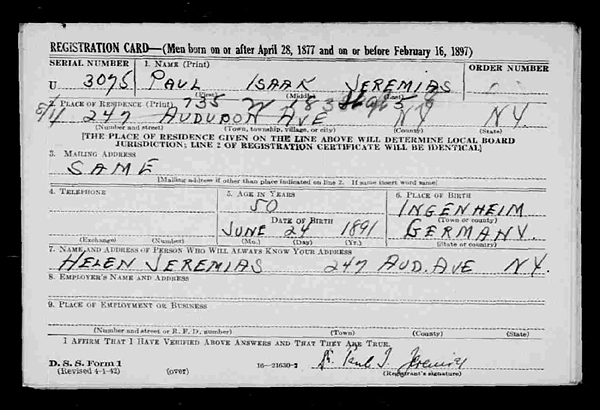 REGISTRATION CARD—(Men born on or after April 28, 1877 and on or before February 16, 1897)
SERIAL NUMBER 1. NAME (Print) ORDER NUMBER
U 3095 PAUL ISAAK JEREMIAS
(First) (Middle) (Last)
735 W 183
2. PLACE OF RESIDENCE (Print)
247 AUDUBON AVE NY NY
(Number and street) (Town, township, village, or city) (County) (State)
[THE PLACE OF RESIDENCE GIVEN ON THE LINE ABOVE WILL DETERMINE LOCAL BOARD
JURISDICTION; LINE 2 OF REGISTRATION CERTIFICATE WILL BE IDENTICAL]
3. MAILING ADDRESS
SAME
[Mailing address if other than place indicated on line 2. If same insert word same]
4. TELEPHONE 5. AGE IN YEARS 6. PLACE OF BIRTH
50 INGENHEIM
DATE OF BIRTH (Town or county)
JUNE 24 1891 GERMANY.
(Exchange) (Number) (Mo.) (Day) (Yr.) (State or country)
7. NAME AND ADDRESS OF PERSON WHO WILL ALWAYS KNOW YOUR ADDRESS
HELEN JEREMIAS 247 AUD. AVE NY.
8. EMPLOYER'S NAME AND ADDRESS
9. PLACE OF EMPLOYMENT OR BUSINESS
(Number and street or R. F. D. number) (Town) (County) (State)
I AFFIRM THAT I HAVE VERIFIED ABOVE ANSWERS AND THAT THEY ARE TRUE.
D. S. S. Form 1 Dr. Paul I. Jeremias
(Revised 4-1-42) (over) 16—21630-2 (Registrant's signature)